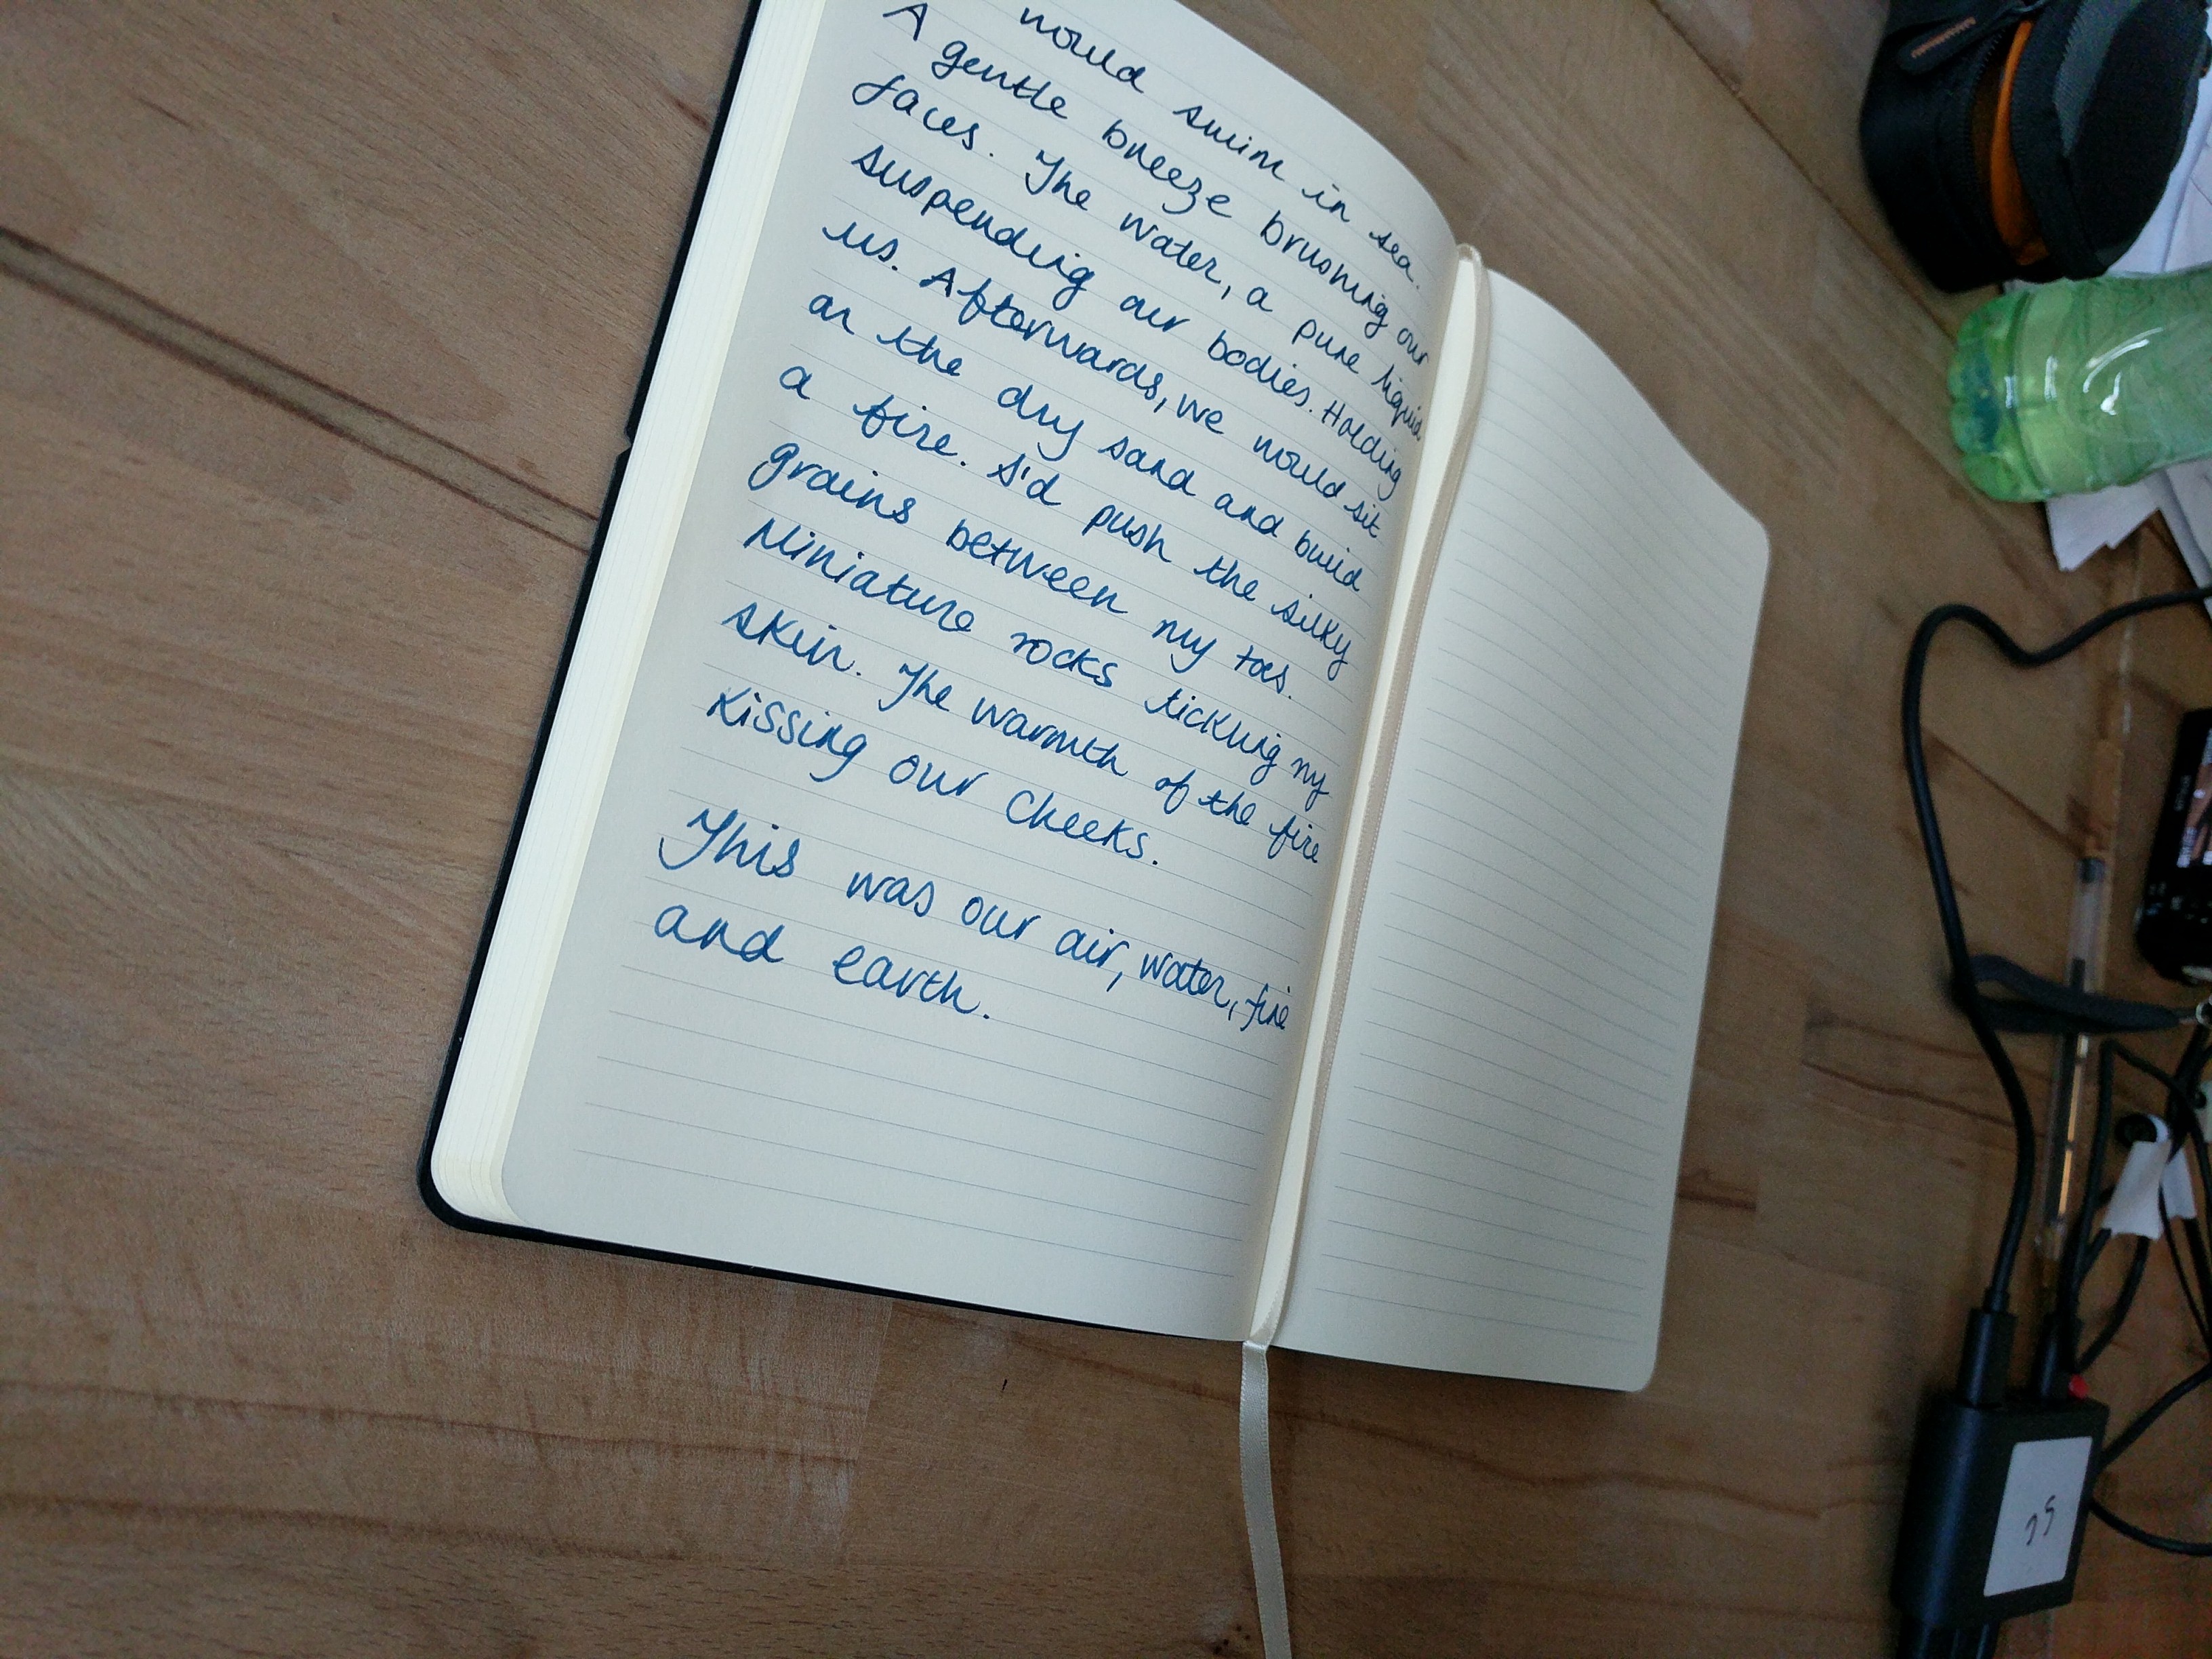 would swim in sea.
A gentle breeze brushing our
faces. The water, a pure liquid
suspending our bodies. Holding
us. Afterwards, we would sit
on the dry sand and build
a fire. I'd push the silky
grains between my toes.
Miniature rocks tickling my
skin. The warmth of the fire
kissing our cheeks.
This was our air, water, fire
and earth.